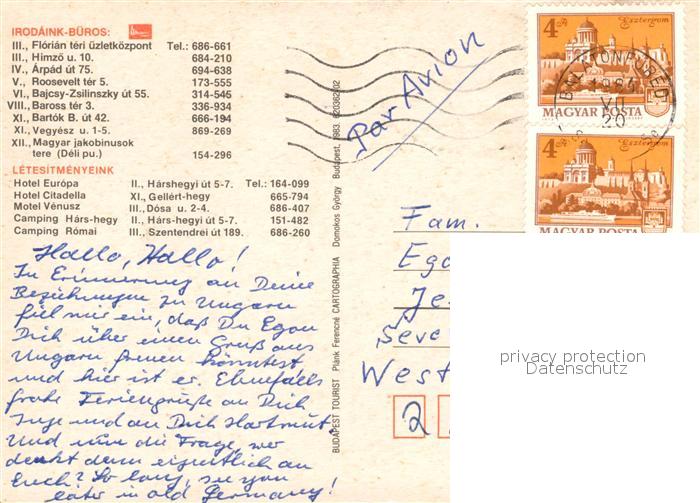 IRODÁINK-BÜROS:
III., Flórián téri üzletközpont Tel.: 686-661
III., Himző u. 10. 684-210
IV., Árpád út 75. 694-638
V., Roosevelt tér 5. 173-555
VI., Bajcsy-Zsilinszky út 55. 314-545
VIII., Baross tér 3. 336-934
XI., Bartók B. út 42. 666-194
XI., Vegyész u. 1-5. 869-269
XII., Magyar jakobinusok
tere (Déli pu.) 154-296
LÉTESÍTMÉNYEINK
Hotel Európa II., Hárshegyi út 5-7. Tel.: 164-099
Hotel Citadella XI., Gellért-hegy 665-794
Motel Vénusz III., Dósa u. 2-4. 686-407
Camping Hárs-hegy II., Hárs-hegyi út 5-7. 151-482
Camping Római III., Szentendrei út 189. 686-260
Hallo, Hallo!
In Erinnerung an Deine
Beziehungen zu Ungarn
fiel mir ein, daß Du Egon
Dich über einen Gruß aus
Ungarn freuen könntest
und hier ist er. Ebenfalls
frohe Feriengrüße an Dich
Inge und an Dich Hartmut.
Und nun die Frage, wer
denkt denn eigentlich an
Euch? So long, see you
later in old Germany!
BUDAPEST TOURIST Plánk Ferencné CARTOGRAPHIA Domokos György Budapest, 1983. 820362/02
Par Avion
4 Ft Esztergom
MAGYAR POSTA
4 Ft Esztergom
MAGYAR POSTA
BALATONFÜRED
VII
20
Fam.
Ego
Je
Seve
West
2
privacy protection
Datenschutz